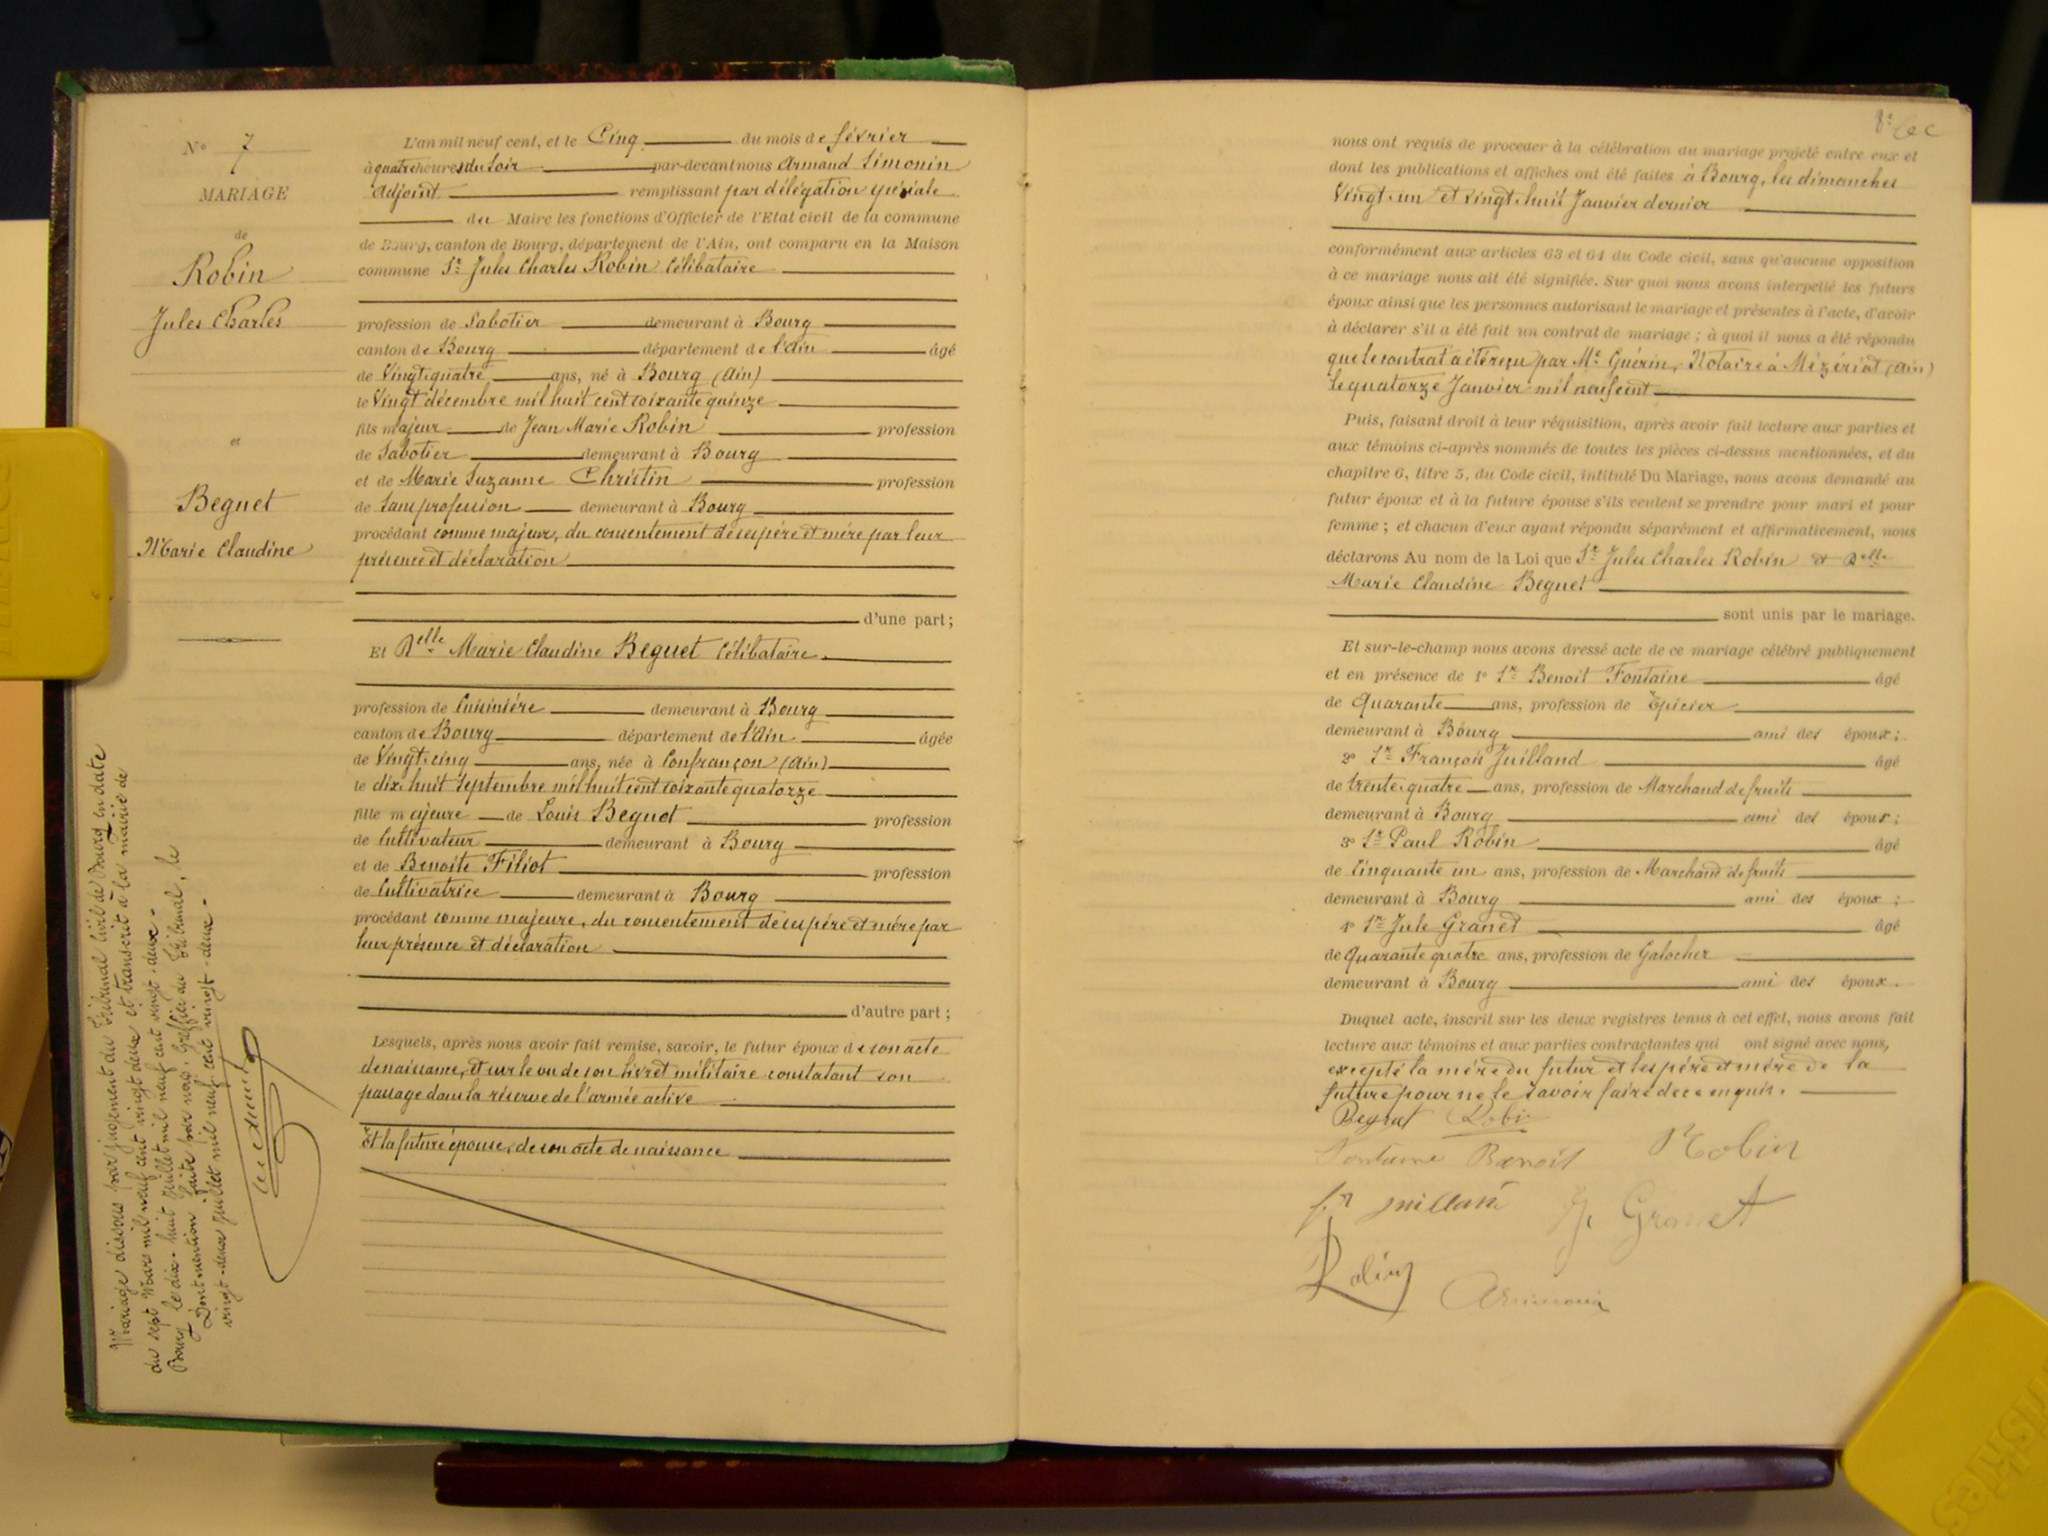 N° 7
MARIAGE
de
Robin
Jules Charles
et
Beguet
Marie Claudine
Mariage dissous par jugement du Tribunal Civil de Bourg en date
du sept Mars mil neuf cent vingt deux et transcrit à la mairie de
Bourg le dix-huit Juillet mil neuf cent vingt-deux.
Dont mention faite par nous, Greffier du Tribunal, le
vingt-deux Juillet mil neuf cent vingt-deux.
L'an mil neuf cent, et le Cinq du mois de février
à quatre heures du soir par-devant nous Armand Simonin
Adjoint remplissant par délégation spéciale
du Maire les fonctions d'Officier de l'Etat civil de la commune
de Bourg, canton de Bourg, département de l'Ain, ont comparu en la Maison
commune Sr Jules Charles Robin Célibataire
profession de Sabotier demeurant à Bourg
canton de Bourg département de l'Ain âgé
de Vingt quatre ans, né à Bourg (Ain)
le Vingt décembre mil huit cent soixante quinze
fils majeur de Jean Marie Robin profession
de Sabotier demeurant à Bourg
et de Marie Suzanne Chrístin profession
de Sans profession demeurant à Bourg
procédant comme majeur, du consentement de ses père et mère par leur
présence et déclaration
d'une part;
Et Delle Marie Claudine Beguet Célibataire
profession de Cuisinière demeurant à Bourg
canton de Bourg département de l'Ain âgée
de Vingt-cinq ans, née à Confrançon (Ain)
le dix-huit Septembre mil huit cent soixante quatorze
fille majeure de Louis Beguet profession
de Cultivateur demeurant à Bourg
et de Benoite Filiot profession
de Cultivatrice demeurant à Bourg
procédant comme majeure, du consentement de ses père et mère par
leur présence et déclaration
d'autre part;
Lesquels, après nous avoir fait remise, savoir, le futur époux de son acte
de naissance, et sur le vu de son livret militaire constatant son
passage dans la réserve de l'armée active
Et la future épouse, de son acte de naissance
nous ont requis de procéder à la célébration du mariage projeté entre eux et
dont les publications et affiches ont été faites à Bourg, les dimanches
Vingt-un et vingt-huit Janvier dernier
conformément aux articles 63 et 64 du Code civil, sans qu'aucune opposition
à ce mariage nous ait été signifiée. Sur quoi nous avons interpellé les futurs
époux ainsi que les personnes autorisant le mariage et présentes à l'acte, d'avoir
à déclarer s'il a été fait un contrat de mariage; à quoi il nous a été répondu
que le contrat a été reçu par Me Guérin, Notaire à Mézériat (Ain)
le quatorze Janvier mil neuf cent
Puis, faisant droit à leur réquisition, après avoir fait lecture aux parties et
aux témoins ci-après nommés de toutes les pièces ci-dessus mentionnées, et du
chapitre 6, titre 5, du Code civil, intitulé Du Mariage, nous avons demandé au
futur époux et à la future épouse s'ils veulent se prendre pour mari et pour
femme; et chacun d'eux ayant répondu séparément et affirmativement, nous
déclarons Au nom de la Loi que Sr Jules Charles Robin et Delle
Marie Claudine Beguet
sont unis par le mariage.
Et sur-le-champ nous avons dressé acte de ce mariage célébré publiquement
et en présence de 1° Sr Benoit Fontaine âgé
de Quarante ans, profession de Epicier
demeurant à Bourg ami des époux;
2° Sr François Juilland âgé
de trente-quatre ans, profession de Marchand de fruits
demeurant à Bourg ami des époux;
3° Sr Paul Robin âgé
de Cinquante un ans, profession de Marchand de fruits
demeurant à Bourg ami des époux;
4° Sr Jule Granet âgé
de Quarante quatre ans, profession de Galocher
demeurant à Bourg ami des époux.
Duquel acte, inscrit sur les deux registres tenus à cet effet, nous avons fait
lecture aux témoins et aux parties contractantes qui ont signé avec nous,
excepté la mère du futur et les père et mère de la
future pour ne le savoir faire de ce enquis.
Beguet Robin
Fontaine Benoit Robin
fr juilland J. Granet
Robin ASimonin